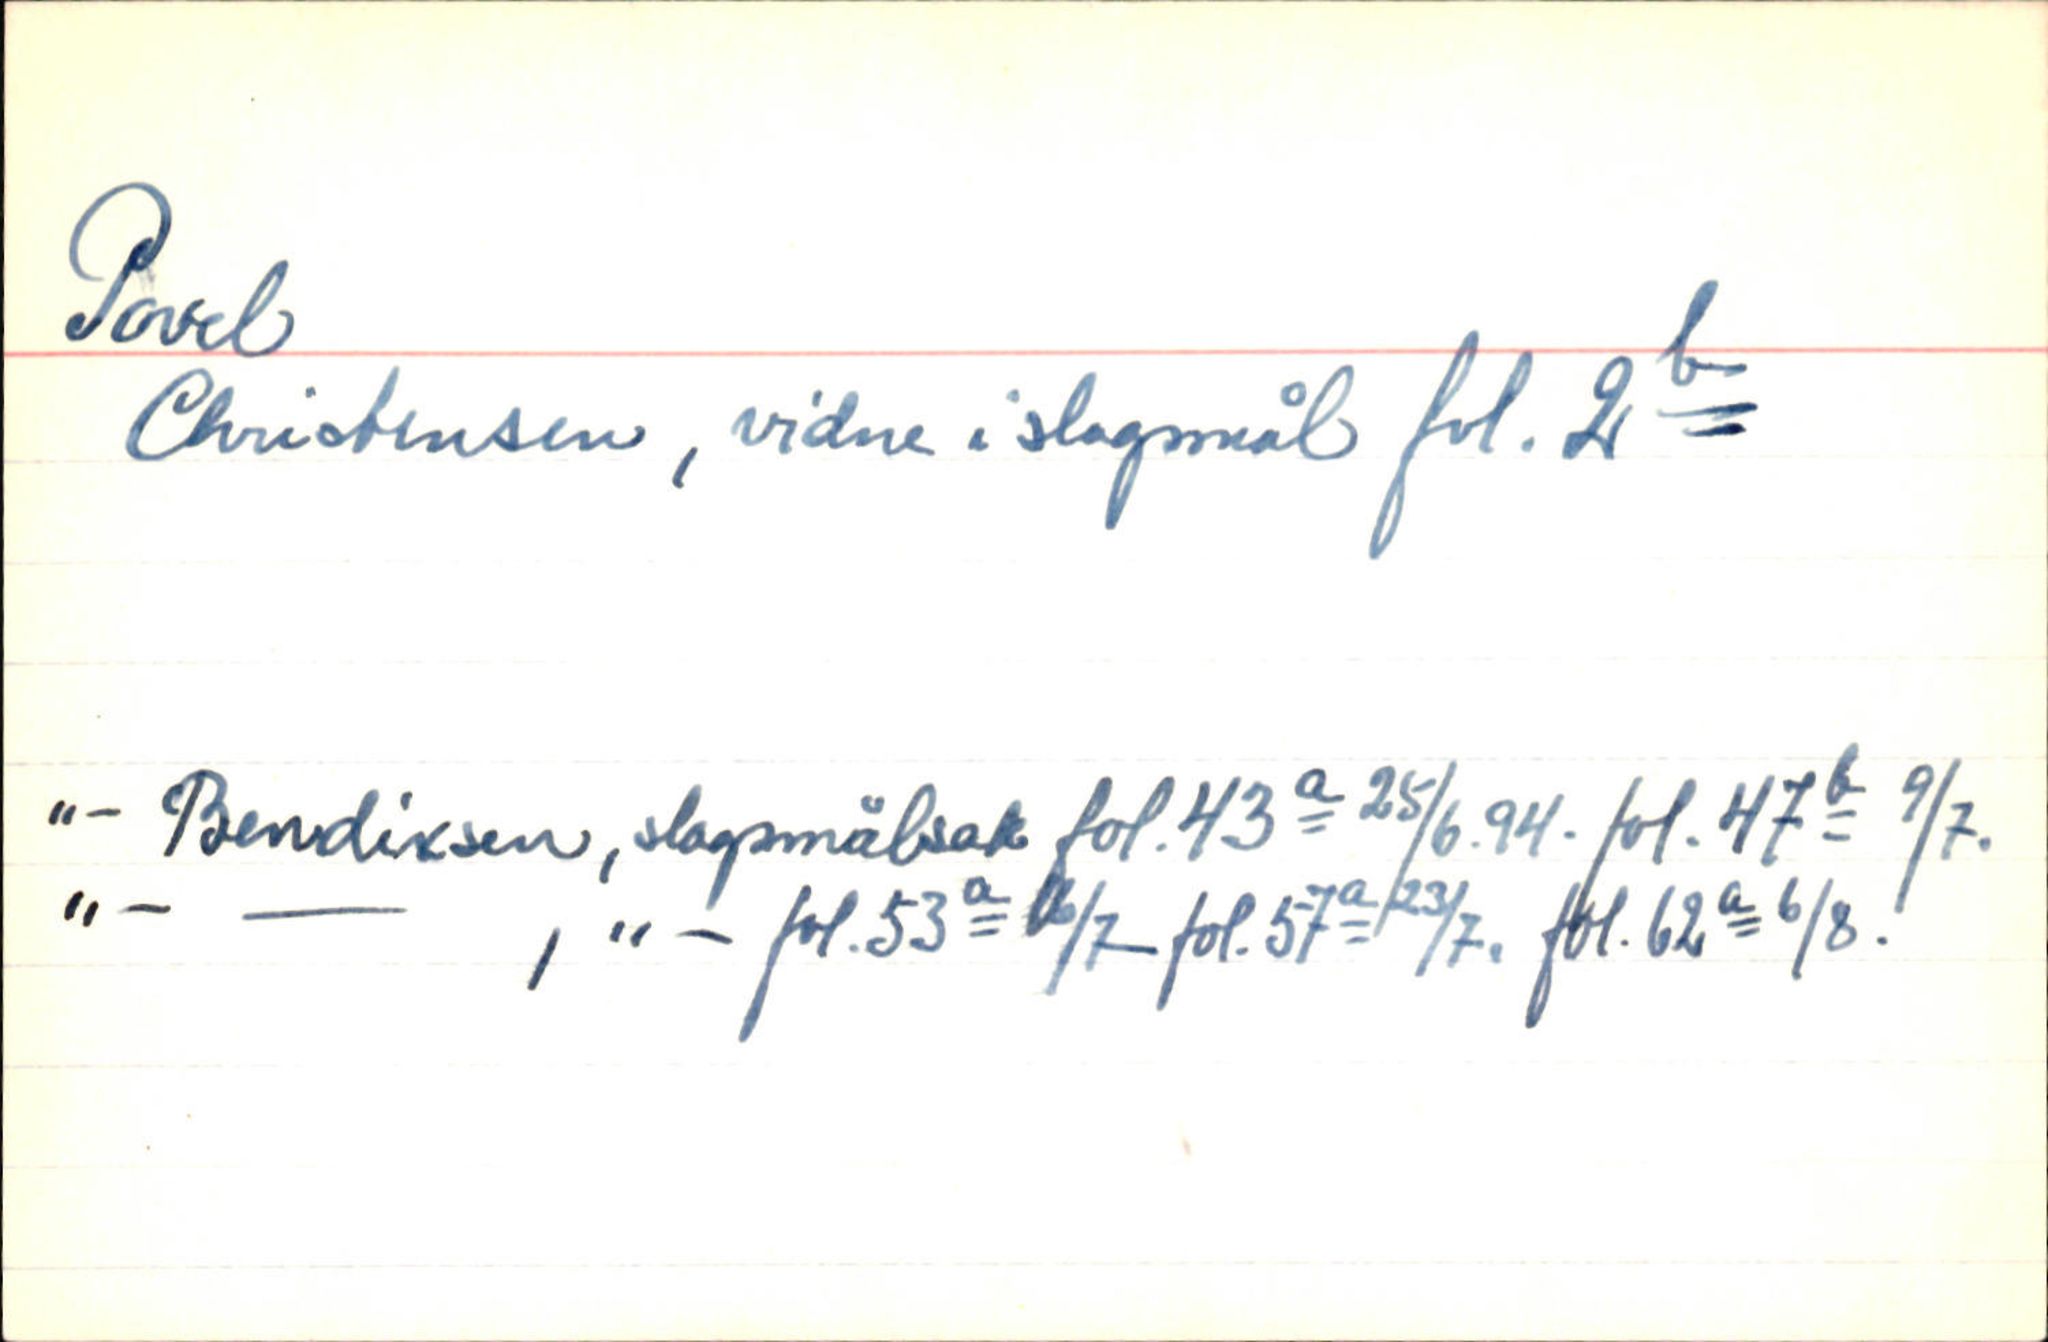 Povel
Christensen, vidne i slagsmål fol. 2b
"- Bendixsen, slagsmålsak fol. 43a 25/6.94. fol. 47b 9/7.
"- —— , "- fol. 53a 16/7 - fol. 57a 23/7. fol. 62a 6/8.